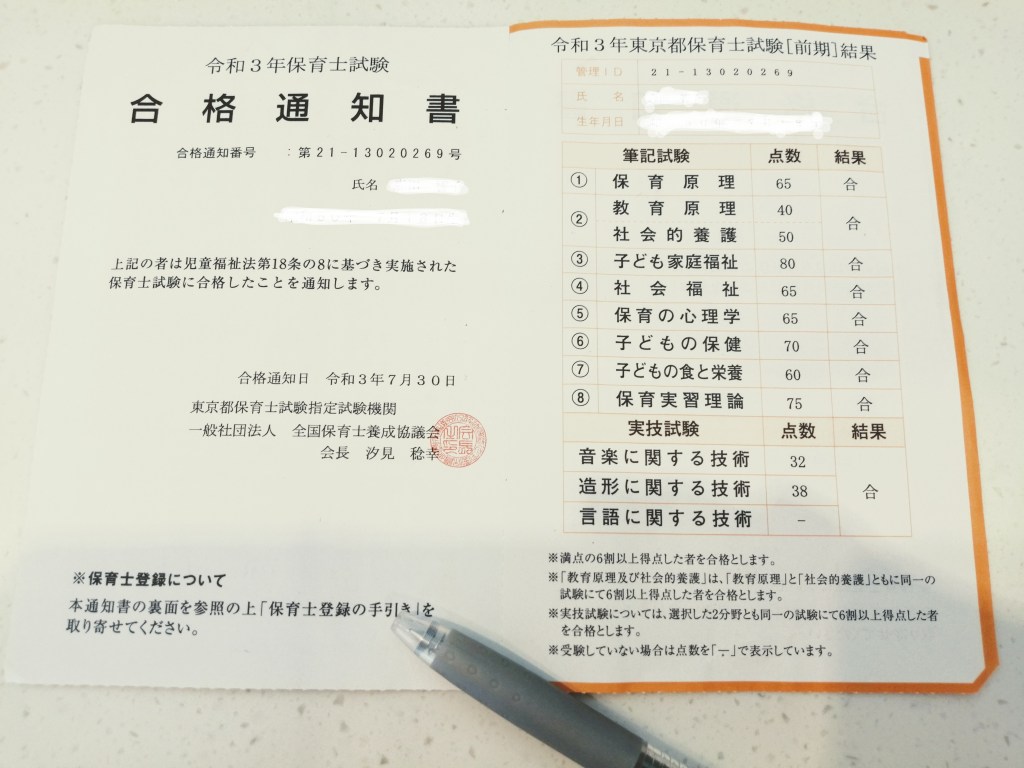 令和3年保育士試験
合格通知書
合格通知番号 : 第21-13020269号
氏名
上記の者は児童福祉法第18条の8に基づき実施された
保育士試験に合格したことを通知します。
合格通知日 令和3年7月30日
東京都保育士試験指定試験機関
一般社団法人 全国保育士養成協議会
会長 汐見 稔幸
※保育士登録について
本通知書の裏面を参照の上「保育士登録の手引き」を
取り寄せてください。
令和3年東京都保育士試験[前期]結果
管理ID 21-13020269
氏名
生年月日
筆記試験 点数 結果
① 保育原理 65 合
② 教育原理 40 合
社会的養護 50
③ 子ども家庭福祉 80 合
④ 社会福祉 65 合
⑤ 保育の心理学 65 合
⑥ 子どもの保健 70 合
⑦ 子どもの食と栄養 60 合
⑧ 保育実習理論 75 合
実技試験 点数 結果
音楽に関する技術 32 合
造形に関する技術 38
言語に関する技術 -
※満点の6割以上得点した者を合格とします。
※「教育原理及び社会的養護」は、「教育原理」と「社会的養護」ともに同一の
試験にて6割以上得点した者を合格とします。
※実技試験については、選択した2分野とも同一の試験にて6割以上得点した者
を合格とします。
※受験していない場合は点数を「-」で表示しています。